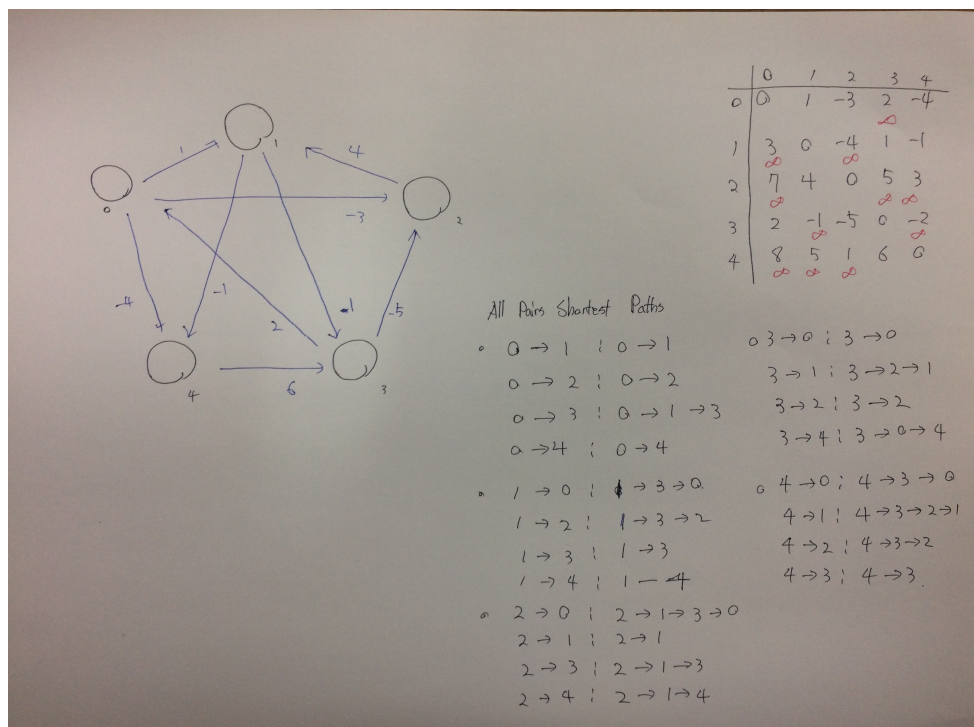 0 1 2 3 4
0 0 1 -3 2 -4
∞
1 3 0 -4 1 -1
∞ ∞
2 7 4 0 5 3
∞ ∞ ∞
3 2 -1 -5 0 -2
∞ ∞
4 8 5 1 6 0
∞ ∞ ∞
1
1
4
0
-3
2
-4
-1
2
1
-5
4
6
3
All Pairs Shortest Paths
0 → 1 ; 0 → 1
0 → 2 ; 0 → 2
0 → 3 ; 0 → 1 → 3
0 → 4 ; 0 → 4
1 → 0 ; 1 → 3 → 0
1 → 2 ; 1 → 3 → 2
1 → 3 ; 1 → 3
1 → 4 ; 1 — 4
2 → 0 ; 2 → 1 → 3 → 0
2 → 1 ; 2 → 1
2 → 3 ; 2 → 1 → 3
2 → 4 ; 2 → 1 → 4
3 → 0 ; 3 → 0
3 → 1 ; 3 → 2 → 1
3 → 2 ; 3 → 2
3 → 4 ; 3 → 0 → 4
4 → 0 ; 4 → 3 → 0
4 → 1 ; 4 → 3 → 2 → 1
4 → 2 ; 4 → 3 → 2
4 → 3 ; 4 → 3